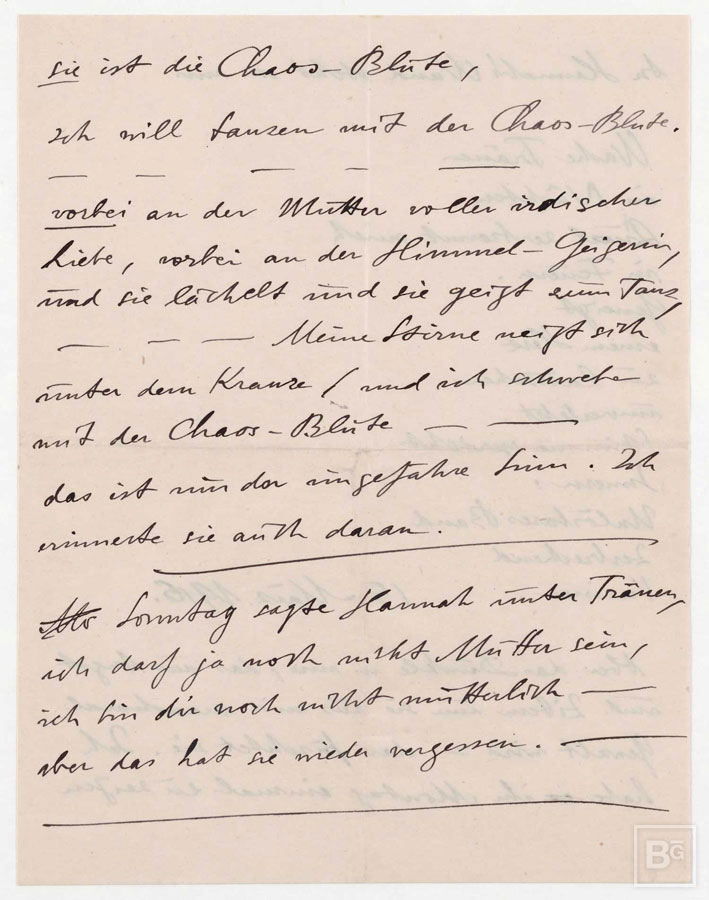 sie ist die Chaos-Blüte,
ich will tanzen mit der Chaos-Blute.
— — — — —
vorbei an der Mutter voller irdischer
Liebe, vorbei an der Himmel-Geigerin,
und sie lächelt und sie geigt zum Tanz,
— — — Meine Stirne neigt sich
unter dem Kranze / und ich schwebe
mit der Chaos-Blüte — —
das ist nun der ungefähre Sinn. Ich
erinnerte sie auch daran.
Also Sonntag sagte Hannah unter Tränen,
ich darf ja noch nicht Mutter sein,
ich bin dir noch nicht mütterlich —
aber das hat sie wieder vergessen. —
BG